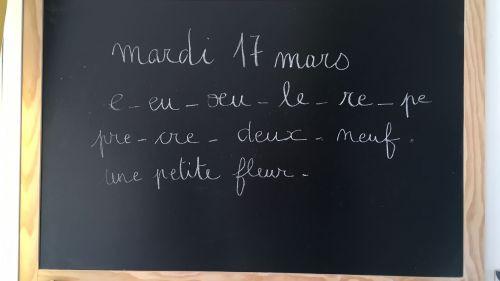 mardi 17 mars
e - eu - oeu - le - re - pe
pre - cre - deux - neuf.
une petite fleur.